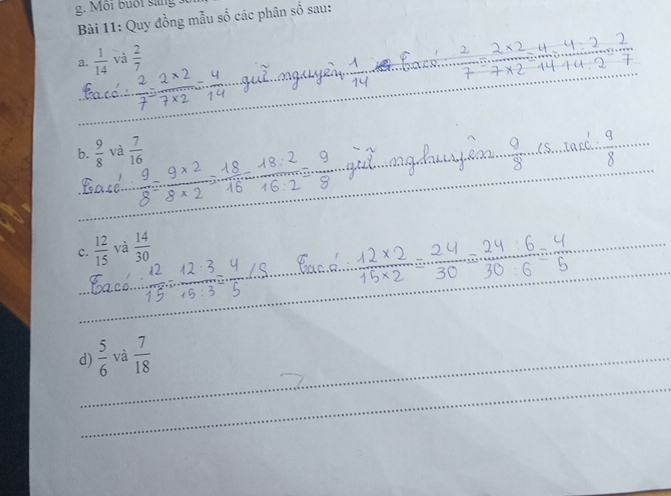 g. Mỗi buổi sáng
Bài 11: Quy đồng mẫu số các phân số sau:
a. 1/14 và 2/7
Ta có: 2/7 = 2×2/7×2 = 4/14 giữ nguyên 1/14 Ta có: 2/7 = 2×2/7×2 = 4/14 = 4:2/14:2 = 2/7
b. 9/8 và 7/16
Ta có 9/8 = 9×2/8×2 = 18/16 = 18:2/16:2 = 9/8 9/8 9/8
c. 12/15 và 14/30
Ta có: 12/15 = 12:3/15:3 = 4/5 Ta có: 12×2/15×2 = 24/30 = 24:6/30:6 = 4/5
d) 5/6 và 7/18